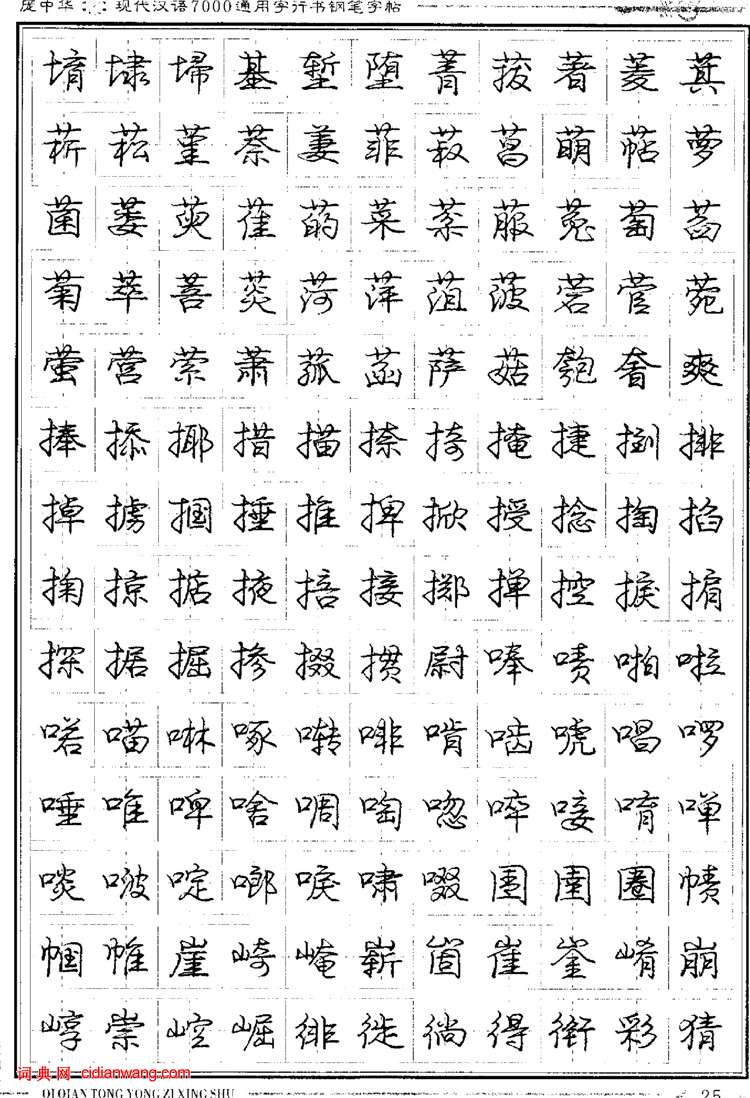 庞中华:现代汉语7000通用字行书钢笔字帖
堉埭埽基堑堕菁菝著菱萁
菥菘堇萘萋菲菽菖萌萜萝
菌萎萸萑菂菜棻菔菟萄萏
菊萃菩菼菏萍菹菠菪菅菀
萤营萦萧菰菡萨菇匏奢爽
捧掭揶措描捺掎掩捷捯排
掉掳掴捶推捭掀授捻掏掐
掬掠掂掖掊接掷掸控捩掮
探据掘掺掇掼尉唪啧啪啦
喏喵啉啄啭啡啃啮唬唱啰
唾唯啤啥啁啕唿啐唼唷啴
啖啵啶啷唳啸啜圉圊圈帻
帼帷崖崎崦崭崮崔崟崤崩
崞崇崆崛徘徙徜得衔彩猜
词典网 cidianwang.com
QIQIAN TONG YONG ZI XING SHU 25